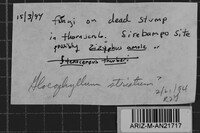 15/8/94 Fungi on dead stump
in thornscrub, Sirebampo site
possibly Ziziphus amole "
Stenocereus thurberi
Gloeophyllum striatum
2/21/96
ARIZ-M-AN21717